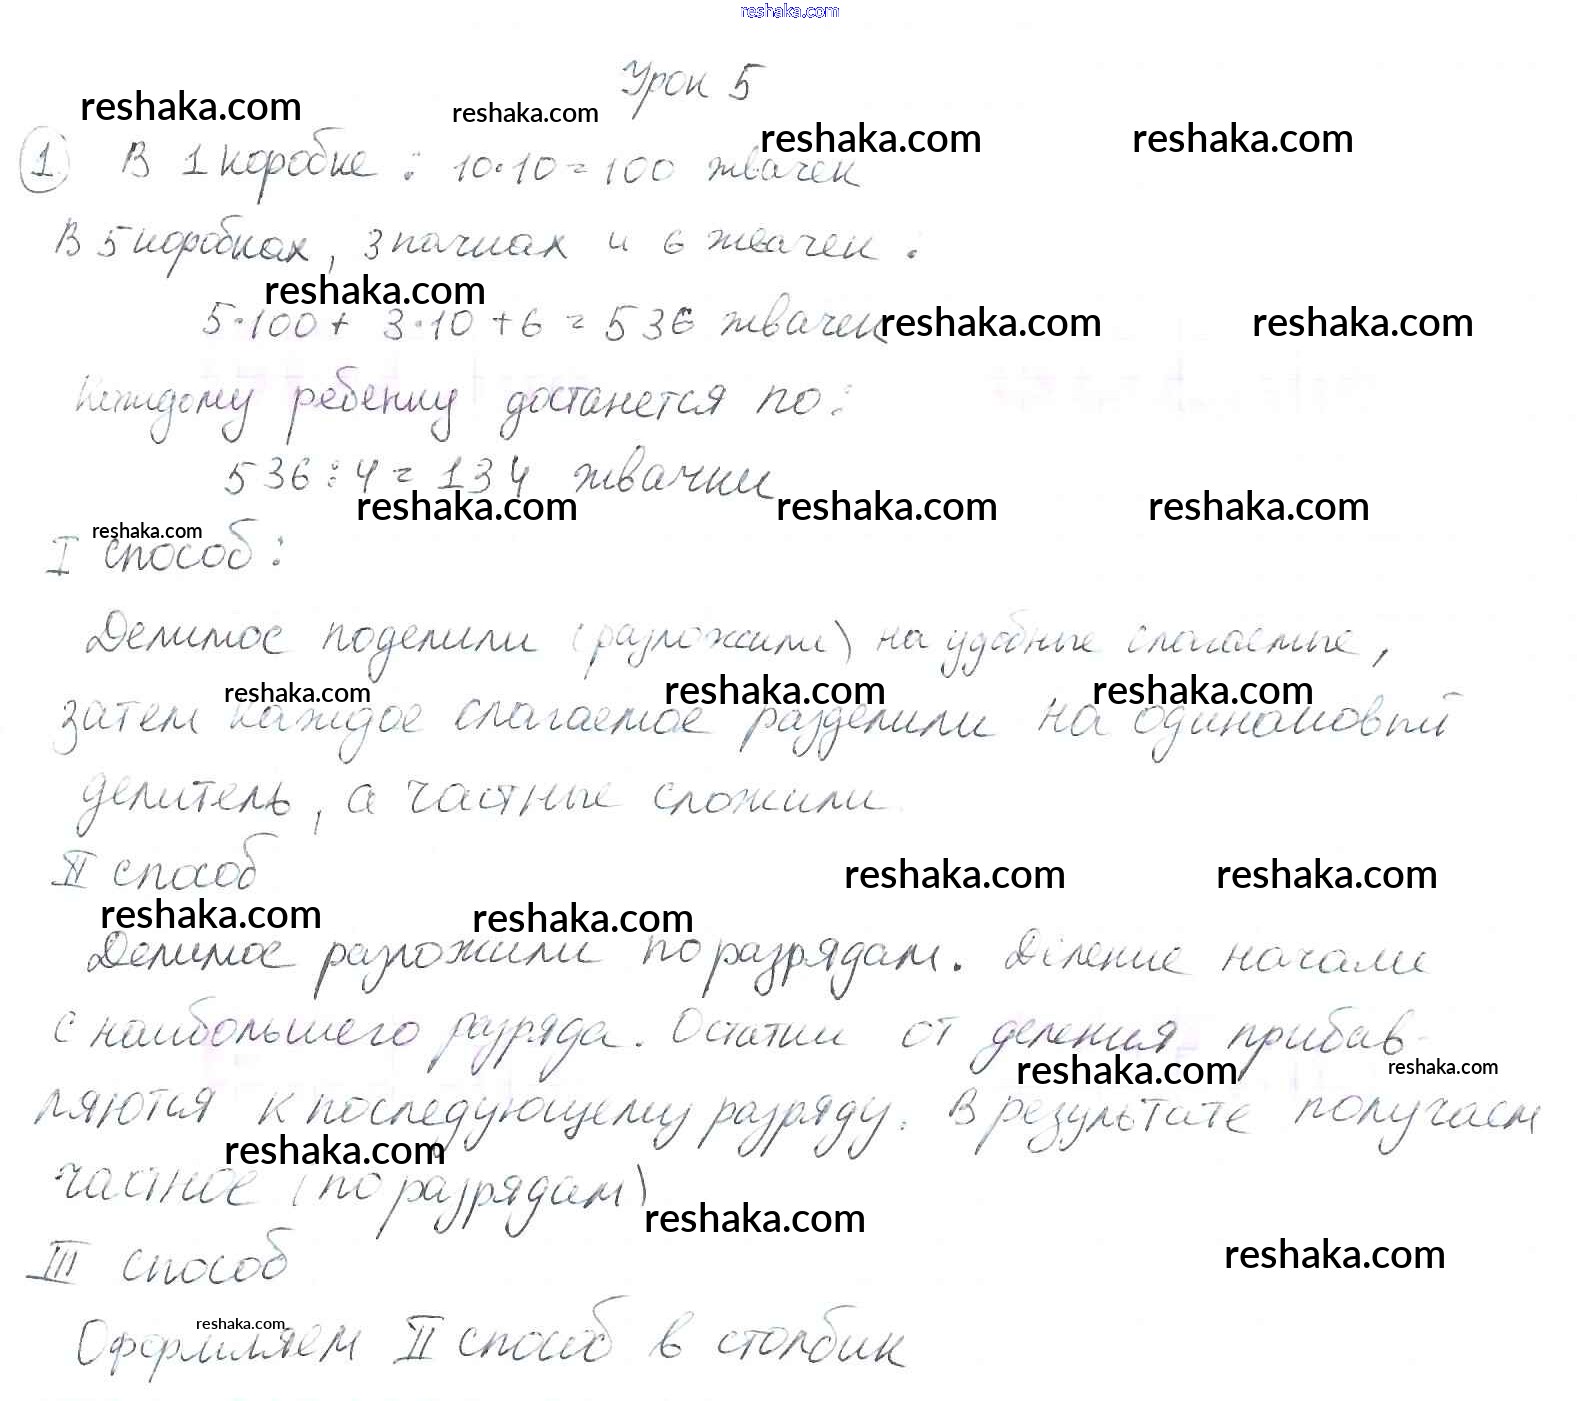 reshaka.com
Урок 5
reshaka.com reshaka.com reshaka.com reshaka.com
1. В 1 коробке : 10·10 = 100 жвачек
В 5 коробках, 3 пачках и 6 жвачек :
reshaka.com
5·100 + 3·10 + 6 = 536 жвачек
reshaka.com reshaka.com
Каждому ребенку достанется по :
536 : 4 = 134 жвачки
reshaka.com reshaka.com reshaka.com
reshaka.com
I способ :
Делимое поделили (разложили) на удобные слагаемые,
reshaka.com reshaka.com reshaka.com
затем каждое слагаемое разделили на одинаковый
делитель, а частные сложили.
II способ
reshaka.com reshaka.com
reshaka.com reshaka.com
Делимое разложили по разрядам. Деление начали
с наибольшего разряда. Остатки от деления прибав-
reshaka.com reshaka.com
ляются к последующему разряду. В результате получаем
reshaka.com
частное (по разрядам)
reshaka.com
III способ
reshaka.com
reshaka.com
Оформляем II способ в столбик